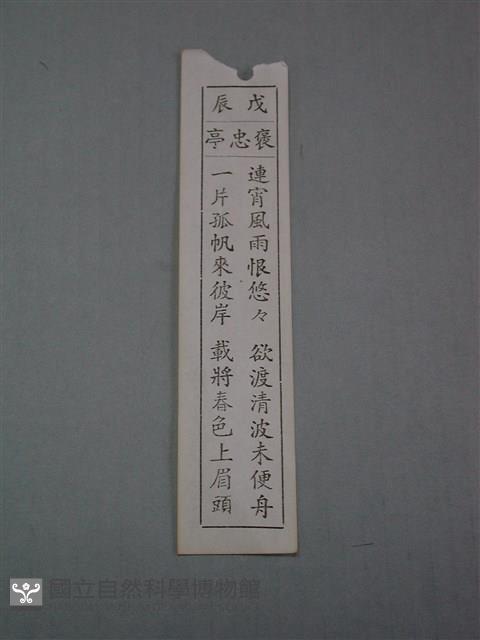 戊辰
褒忠亭
連宵風雨恨悠々 欲渡清波未便舟
一片孤帆來彼岸 載將春色上眉頭
國立自然科學博物館